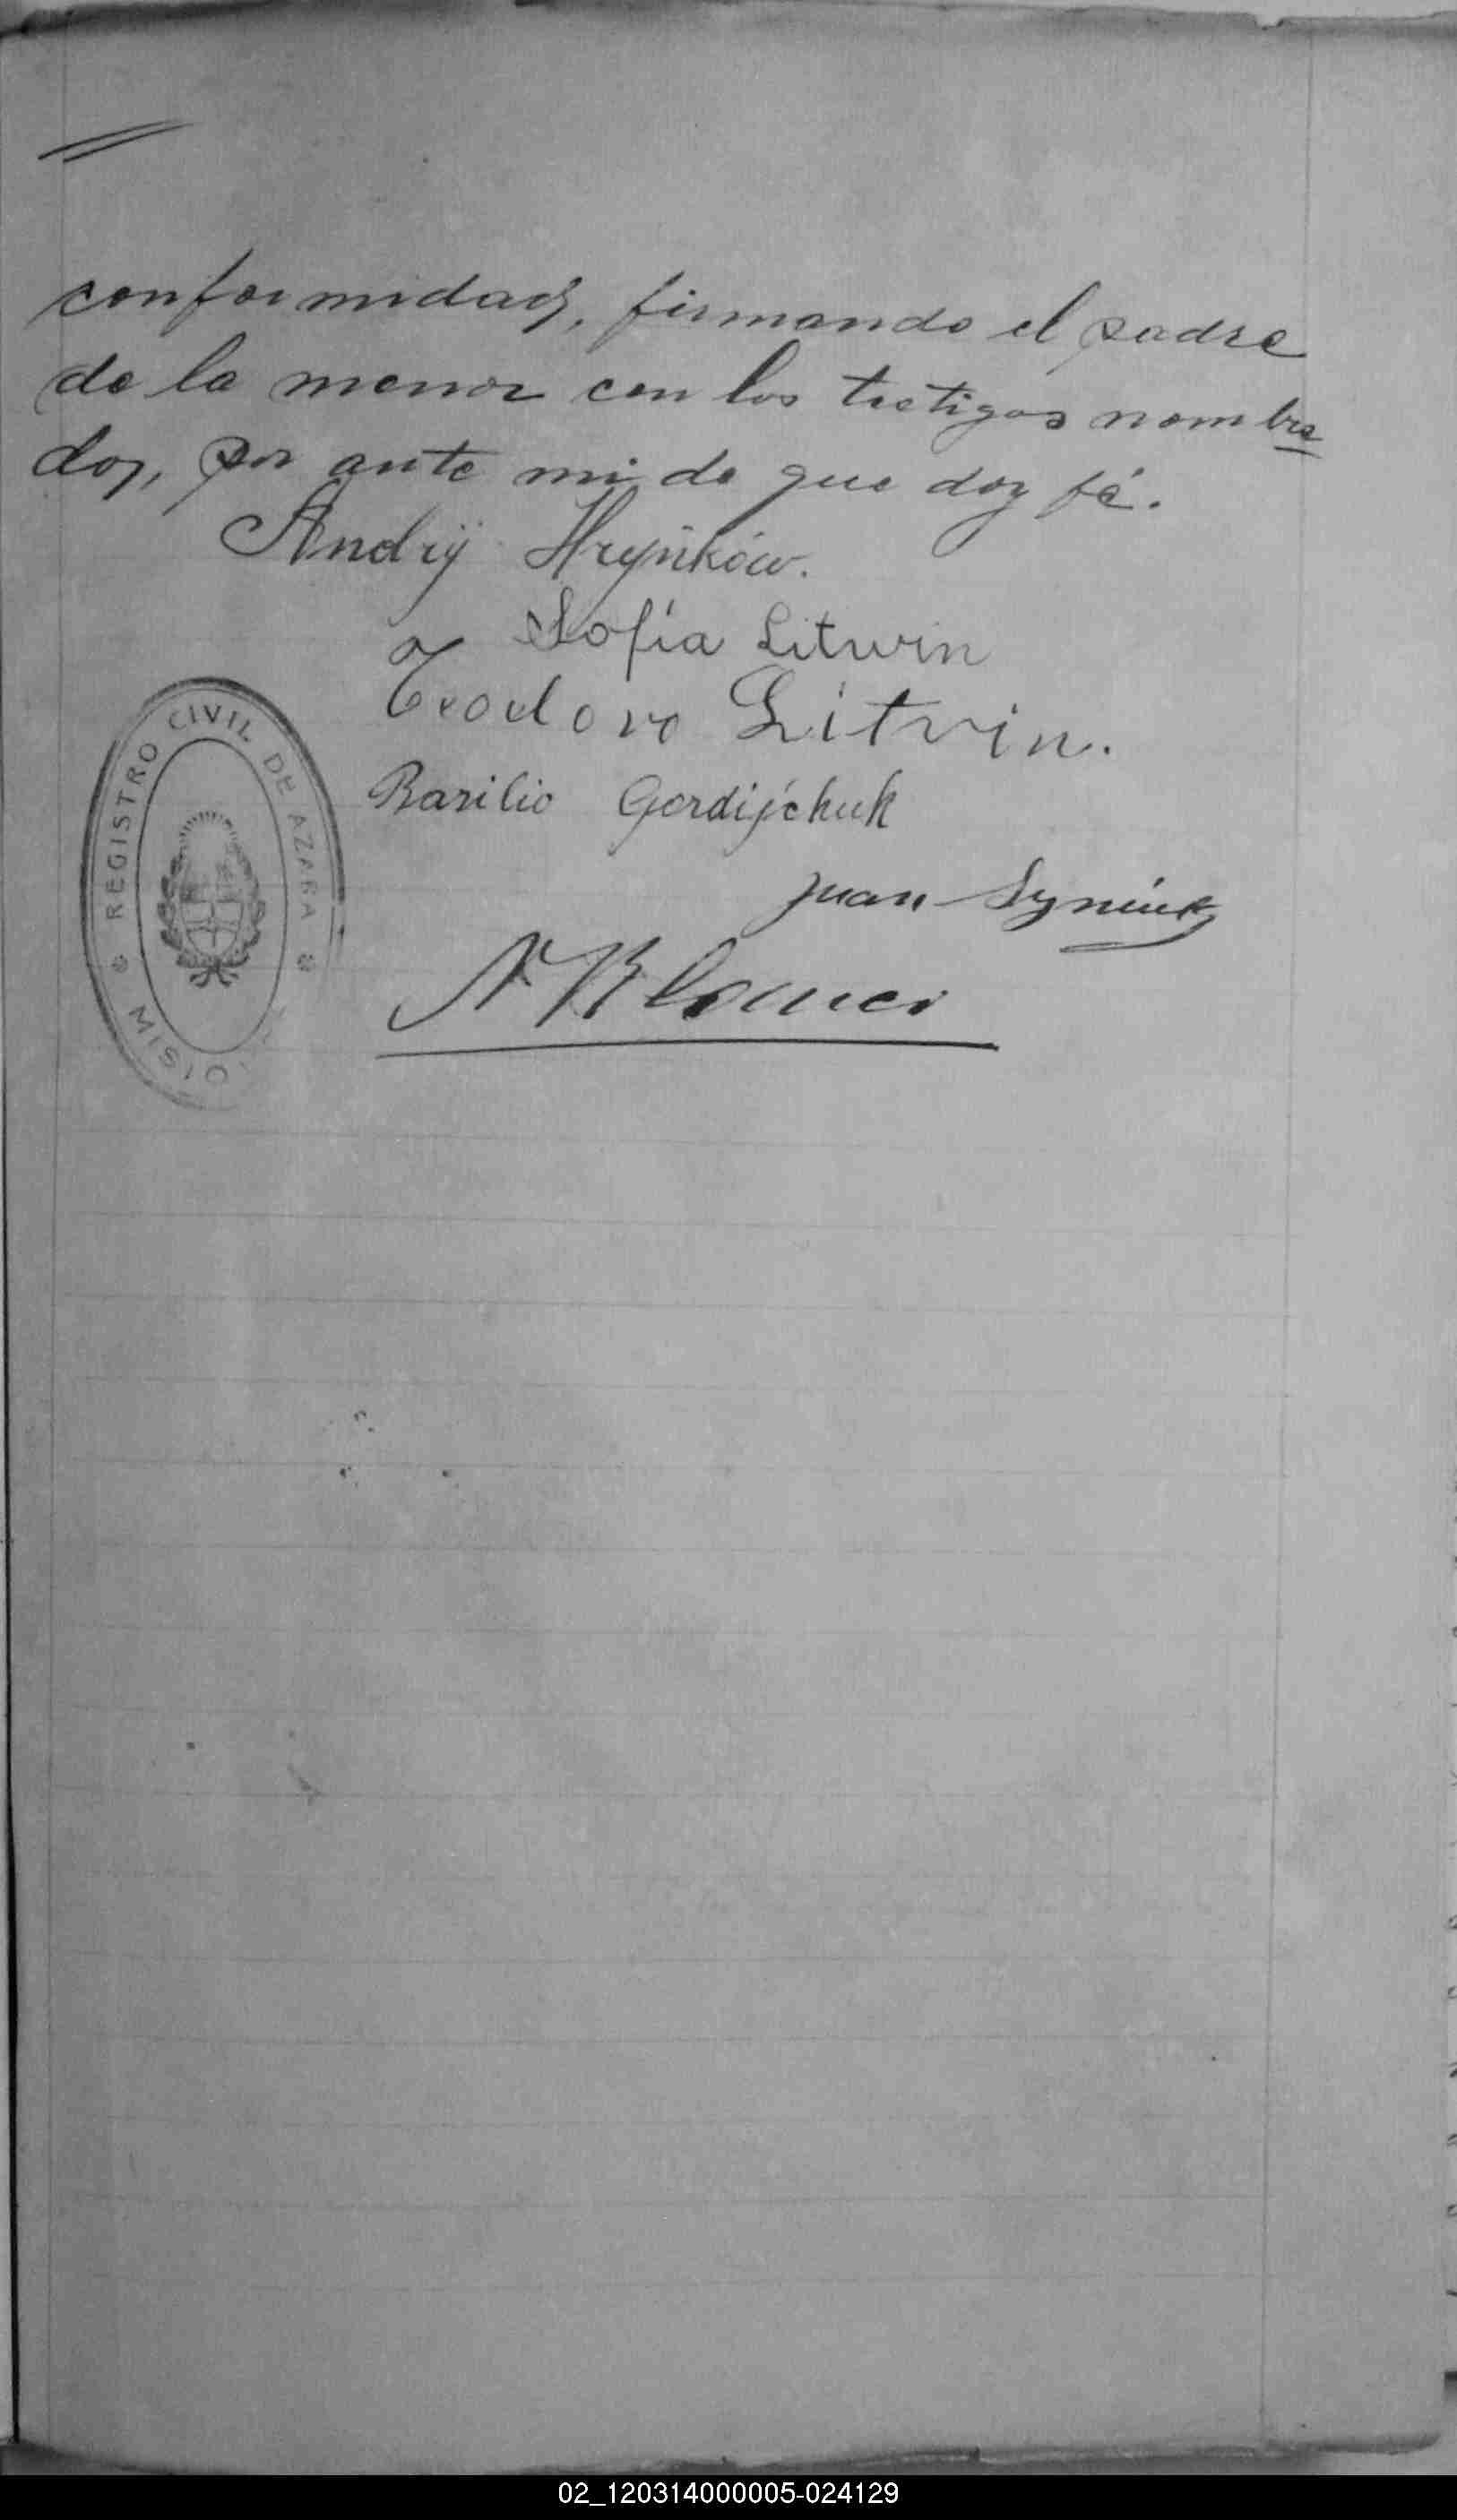 conformidad, firmando el padre
de la menor con los testigos nombra
dos, por ante mi de que doy fé.
Andrij Hryńków.
Sofía Litwin
Teodoro Litvin.
Basilio Gordijchuk
Juan
REGISTRO CIVIL DE AZARA
MISIO
02_120314000005-024129